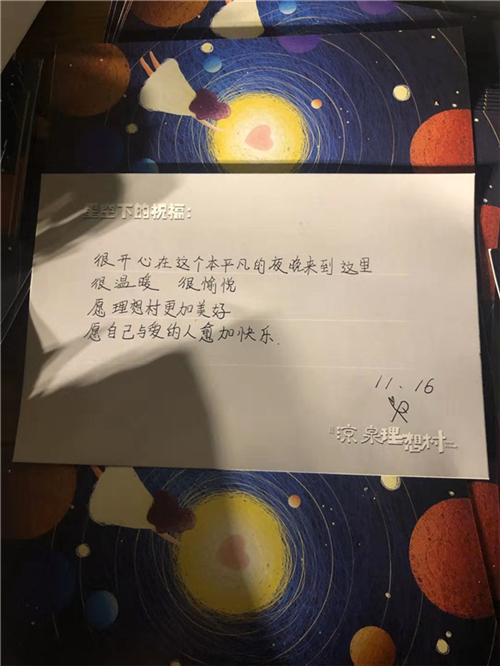 星空下的祝福：
很开心在这个本平凡的夜晚来到这里
很温暖 很愉悦
愿理想村更加美好
愿自己与爱的人愈加快乐.
11.16
凉泉理想村